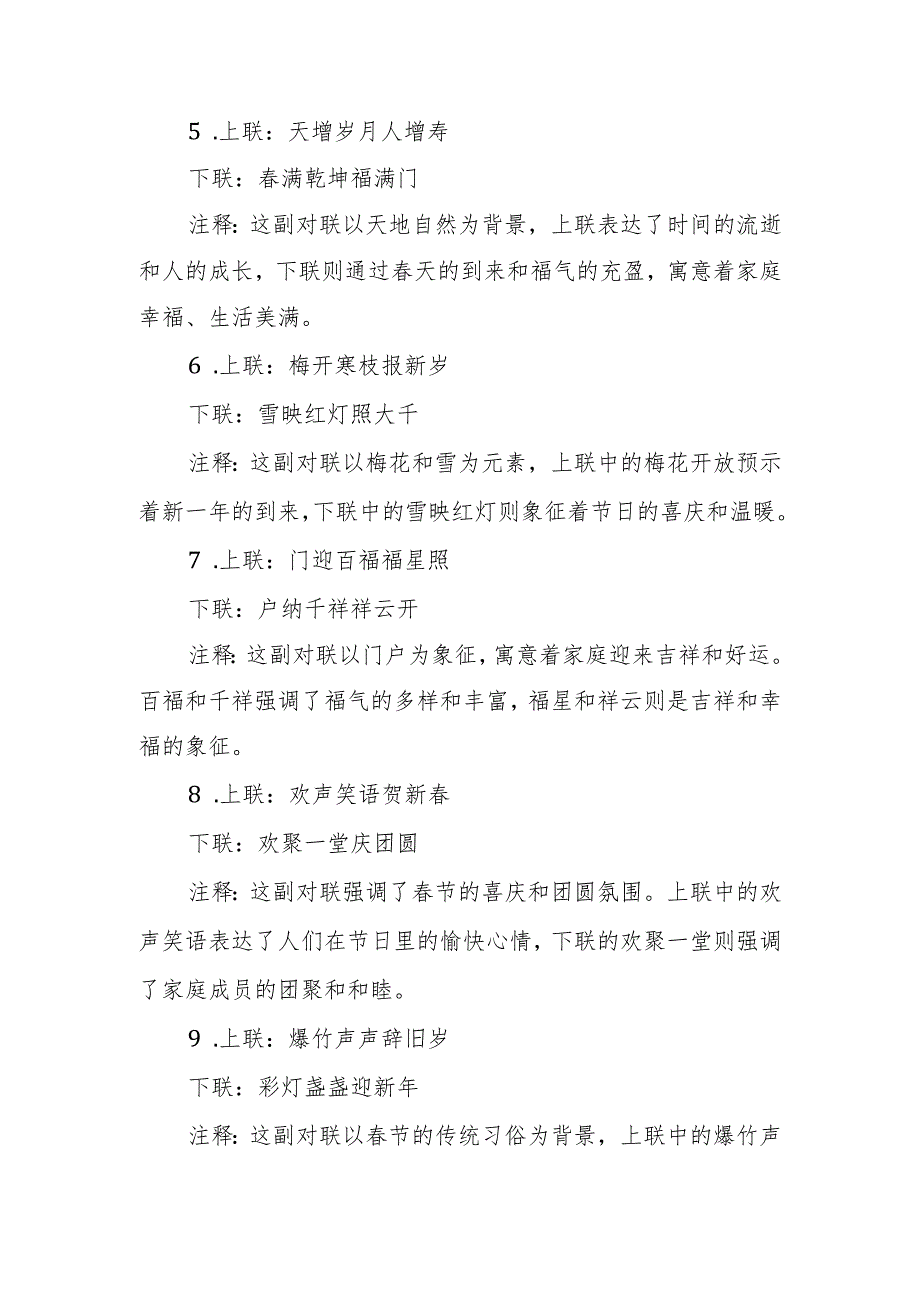 5 .上联：天增岁月人增寿
下联：春满乾坤福满门
注释：这副对联以天地自然为背景，上联表达了时间的流逝
和人的成长，下联则通过春天的到来和福气的充盈，寓意着家庭
幸福、生活美满。
6 .上联：梅开寒枝报新岁
下联：雪映红灯照大千
注释：这副对联以梅花和雪为元素，上联中的梅花开放预示
着新一年的到来，下联中的雪映红灯则象征着节日的喜庆和温暖。
7 .上联：门迎百福福星照
下联：户纳千祥祥云开
注释：这副对联以门户为象征，寓意着家庭迎来吉祥和好运。
百福和千祥强调了福气的多样和丰富，福星和祥云则是吉祥和幸
福的象征。
8 .上联：欢声笑语贺新春
下联：欢聚一堂庆团圆
注释：这副对联强调了春节的喜庆和团圆氛围。上联中的欢
声笑语表达了人们在节日里的愉快心情，下联的欢聚一堂则强调
了家庭成员的团聚和和睦。
9 .上联：爆竹声声辞旧岁
下联：彩灯盏盏迎新年
注释：这副对联以春节的传统习俗为背景，上联中的爆竹声